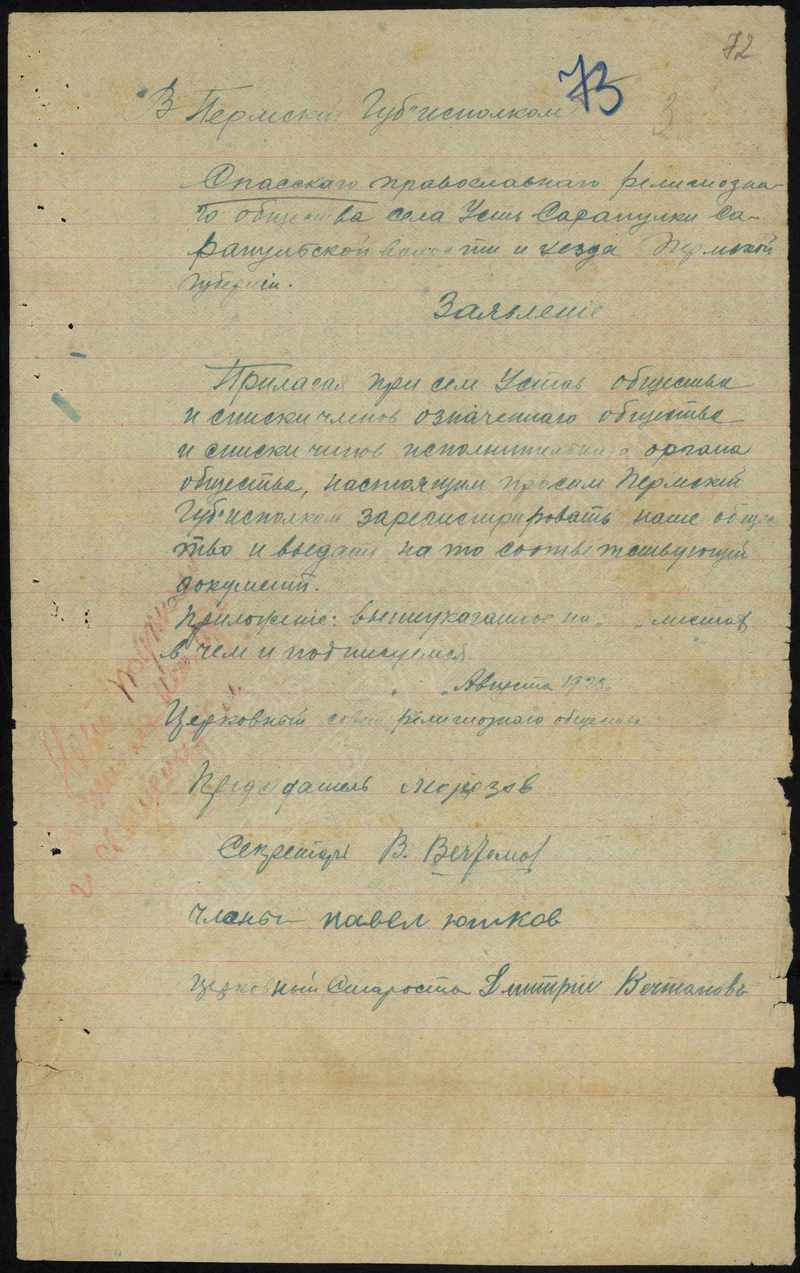 72
73
3
В Пермский Губ'исполком
Спасскаго православнаго религиозна-
го общества села Усть Сарапулки Са-
рапульской волости и уезда Пермской
губернии.
Заявление
Прилагая при сем Устав общества
и списки членов означеннаго общества
и списки чинов исполнительнаго органа
общества, настоящим просим Пермский
Губ'исполком зарегистрировать наше общес
тво и выдать на то соответствующий
документ.
Приложение: вышеуказанное на „ „ листах
в чем и подписуемся.
„ „ Августа
Церковный совет религиознаго общества
Председатель Морозов
Секретарь В. Вечтомов
члены павел юшков
церковный Староста Дмитрий Вечтомовъ